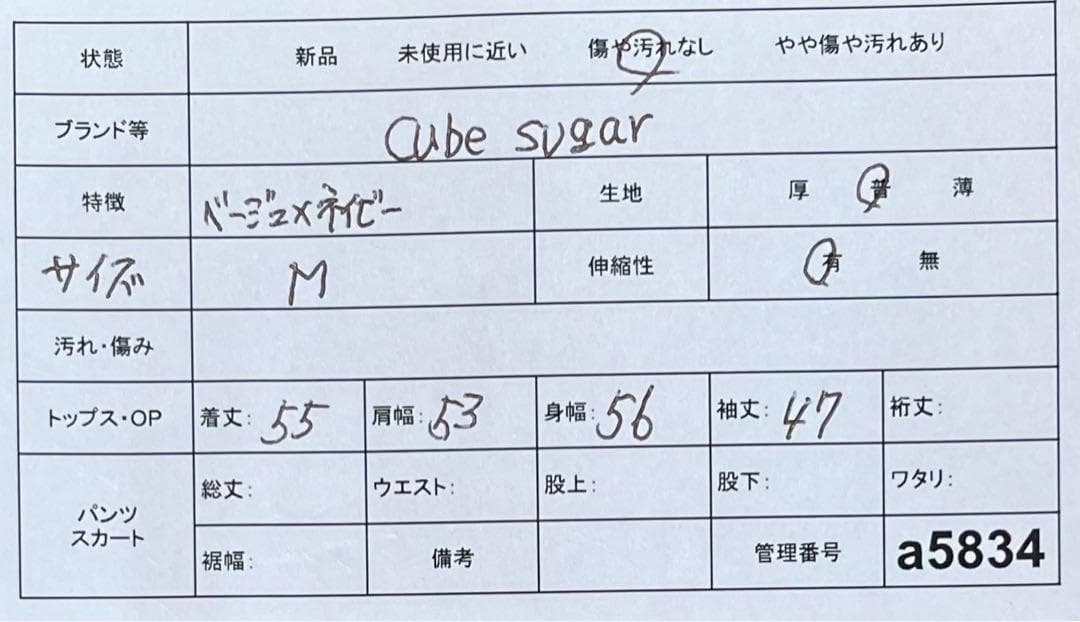 状態 新品 未使用に近い 傷や汚れなし やや傷や汚れあり
ブランド等 Cube sugar
特徴 ベージュ×ネイビー 生地 厚 普 薄
サイズ M 伸縮性 有 無
汚れ・傷み
トップス・OP 着丈: 55 肩幅: 53 身幅: 56 袖丈: 47 裄丈:
パンツ
スカート
総丈: ウエスト: 股上: 股下: ワタリ:
裾幅: 備考 管理番号 a5834